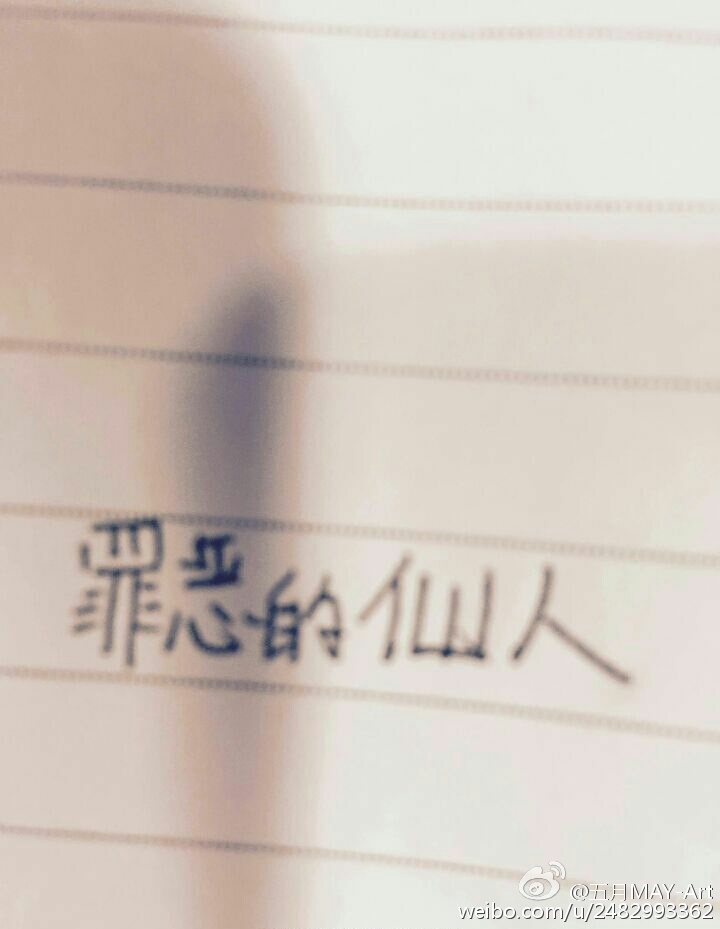 罪恶的仙人
@五月MAY-Art
weibo.com/u/2482993362